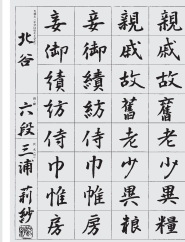 親戚故舊老少異糧
親戚故舊老少異粮
妾御績紡侍巾帷房
妾御績紡侍巾帷房
北谷 六段 三浦莉紗